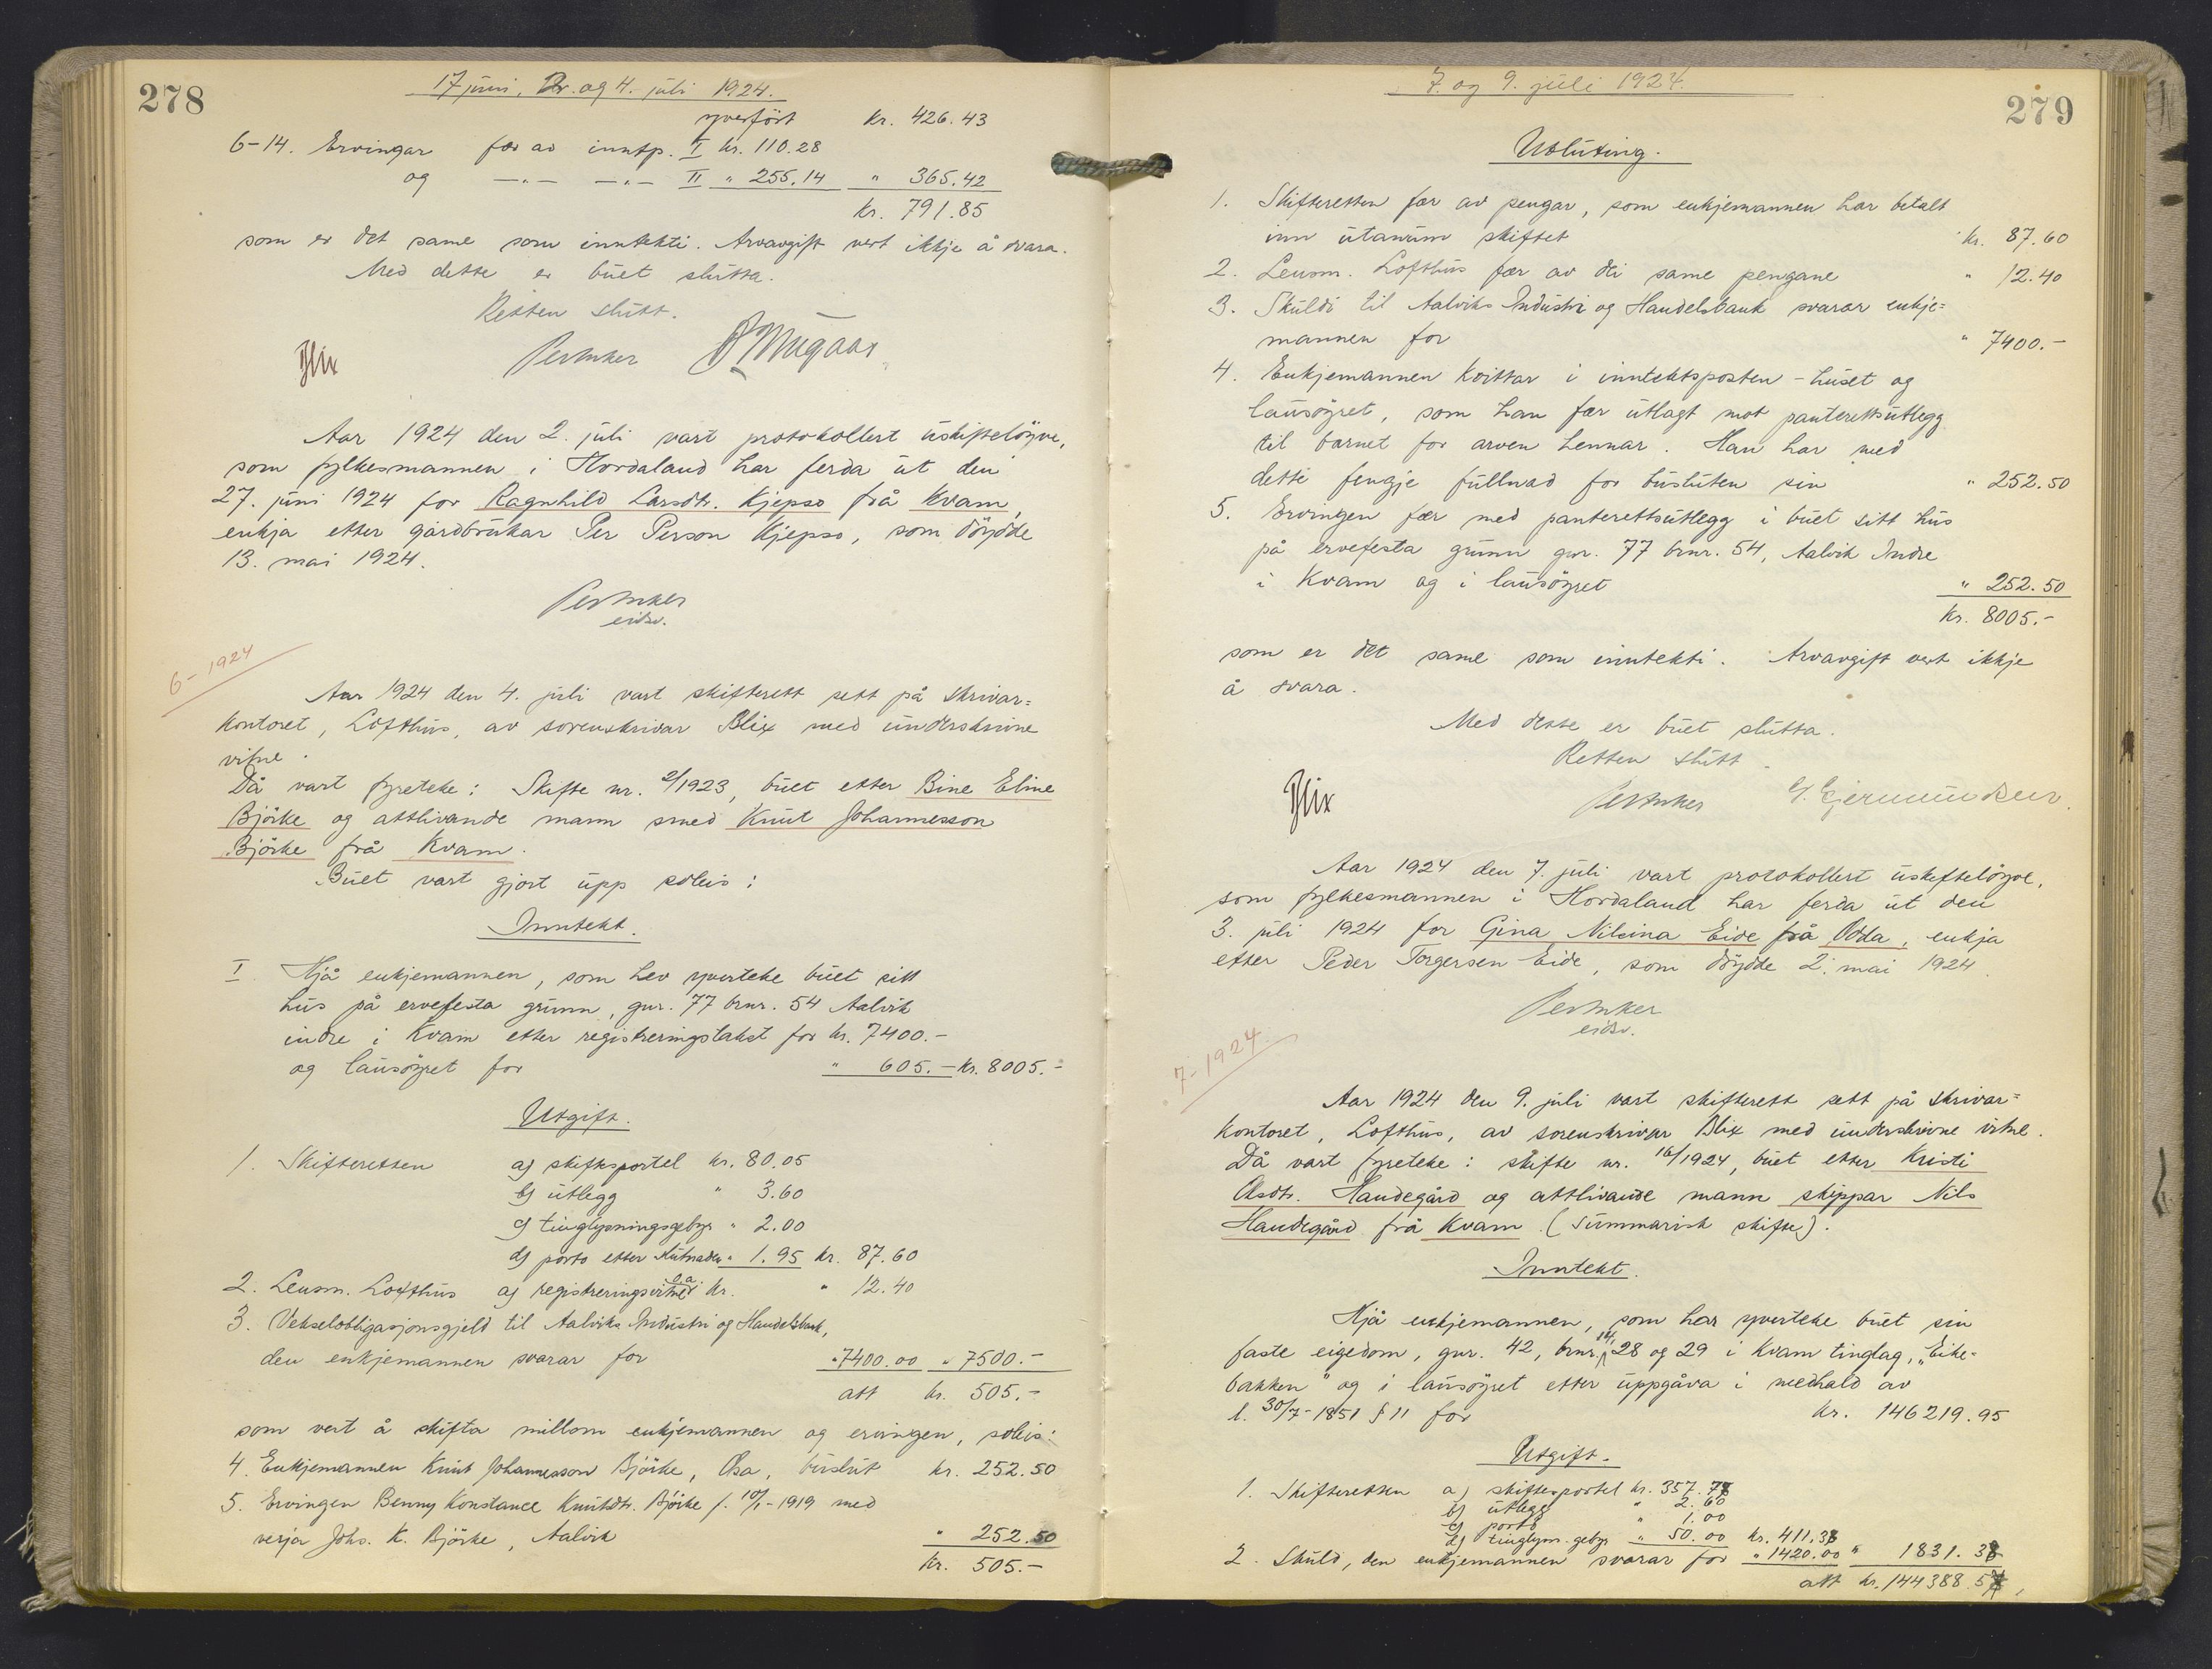 278
17 juni, 2. og 4. juli 1924.
yverfört kr. 426.43
6-14. Ervingar fær av inntp. I kr. 110.28
og —"— —"— II " 255.14 " 365.42
kr. 791.85
som er det same som inntekti. Arvavgift vert ikkje å svara.
Med dette er buet slutta.
Retten slutt.
Blix
Aar 1924 den 2. juli vart protokollert uskiftelöyve,
som fylkesmannen i Hordaland har ferda ut den
27. juni 1924 for Ragnhild Larsdtr. Kjepso frå Kvam,
enkja etter gardbrukar Per Person Kjepso, som döydde
13. mai 1924.
eidsv.
6-1924
Aar 1924 den 4. juli vart skifterett sett på skrivar=
kontoret, Lofthus, av sorenskrivar Blix med underskrivne
vitne.
Då vart fyreteke: Skifte nr. 2/1923, buet etter Bine Eline
Björke og attlivande mann smed Knut Johannesson
Björke frå Kvam.
Buet vart gjort upp soleis:
Inntekt.
I. Hjå enkjemannen, som hev yverteke buet sitt
hus på ervefesta grunn, gnr. 77 bnr. 54 Aalvik
indre i Kvam etter registreringstakst for kr. 7400.-
og lausöyret for " 605.- kr. 8005.-
Utgift.
1. Skifteretten a) skiftesportel kr. 80.05
b) utlegg " 3.60
c) tinglysningsgebyr " 2.00
d) porto etter slutnaden " 1.95 kr. 87.60
2. Lensm. Lofthus a) registreringsvitne o.a. kr. " 12.40
3. Vekselobligasjonsgjeld til Aalviks Industri og Handelsbank,
den enkjemannen svarar for " 7400.00 " 7500.-
att kr. 505.-
som vert å skifta millom enkjemannen og ervingen, soleis:
4. Enkjemannen Knut Johannesson Björke, Osa, buslut kr. 252.50
5. Ervingen Benny Konstance Knutsdtr. Björke f. 10/1-1919 med
verja Johs. K. Björke, Aalvik " 252.50
kr. 505.-
7. og 9. juli 1924.
279
Utluting.
1. Skifteretten fær av pengar, som enkjemannen har betalt
inn utanum skiftet kr. 87.60
2. Lensm. Lofthus fær av dei same pengane " 12.40
3. Skuldi til Aalviks Industri og Handelsbank svarar enkje=
mannen for " 7400.-
4. Enkjemannen kvittar i inntektsposten - huset og
lausöyret, som han fær utlagt mot panterettsutlegg
til barnet for arven hennar. Han har med
dette fengje fullnad for busluten sin " 252.50
5. Ervingen fær med panterettsutlegg i buet sitt hus
på ervefesta grunn gnr. 77 bnr. 54, Aalvik Indre
i Kvam og i lausöyret " 252.50
kr. 8005.-
som er det same som inntekti. Arvavgift vert ikkje
å svara.
Med dette er buet slutta.
Retten slutt.
Blix
Aar 1924 den 7. juli vart protokollert uskiftelöyve,
som fylkesmannen i Hordaland har ferda ut den
3. juli 1924 for Gina Nilsina Eide frå Odda, enkja
etter Peder Torgersen Eide, som döydde 2. mai 1924.
eidsv.
7-1924.
Aar 1924 den 9. juli vart skifterett sett på skrivar=
kontoret, Lofthus, av sorenskrivar Blix med underskrivne vitne.
Då vart fyreteke: skifte nr. 16/1924, buet etter Kristi
Olsdtr. Handegård og attlivande mann skippar Nils
Handegård frå Kvam. (Summarisk skifte).
Inntekt.
Hjå enkjemannen, som har yverteke buet sin
faste eigedom, gnr. 42, bnr. 14, 28 og 29 i Kvam tinglag, "Eike-
bakken" og i lausöyret etter uppgåva i medhald av
l. 30/7-1851 § 11 for kr. 146219.95
Utgift.
1. Skifteretten a) skiftesportel kr. 357.78
b) utlegg " 2.60
c) porto " 1.00
d) tinglysn. gebyr " 50.00 kr. 411.38
2. Skuld, den enkjemannen svarar for " 1420.00 " 1831.38
att kr. 144388.57